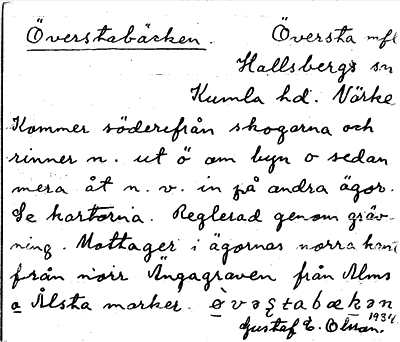 Överstabäcken. Översta mfl
Hallsbergs sn
Kumla hd. Närke
Kommer söderifrån skogarna och
rinner n. ut ö om byn o sedan
mera åt n. v. in på andra ägor.
Se kartorna. Reglerad genom gräv-
ning. Mottager i ägornas norra kant
från norr Ängagraven från Alms
o Ålsta marker.
Gustaf E. Olsson. 1934.